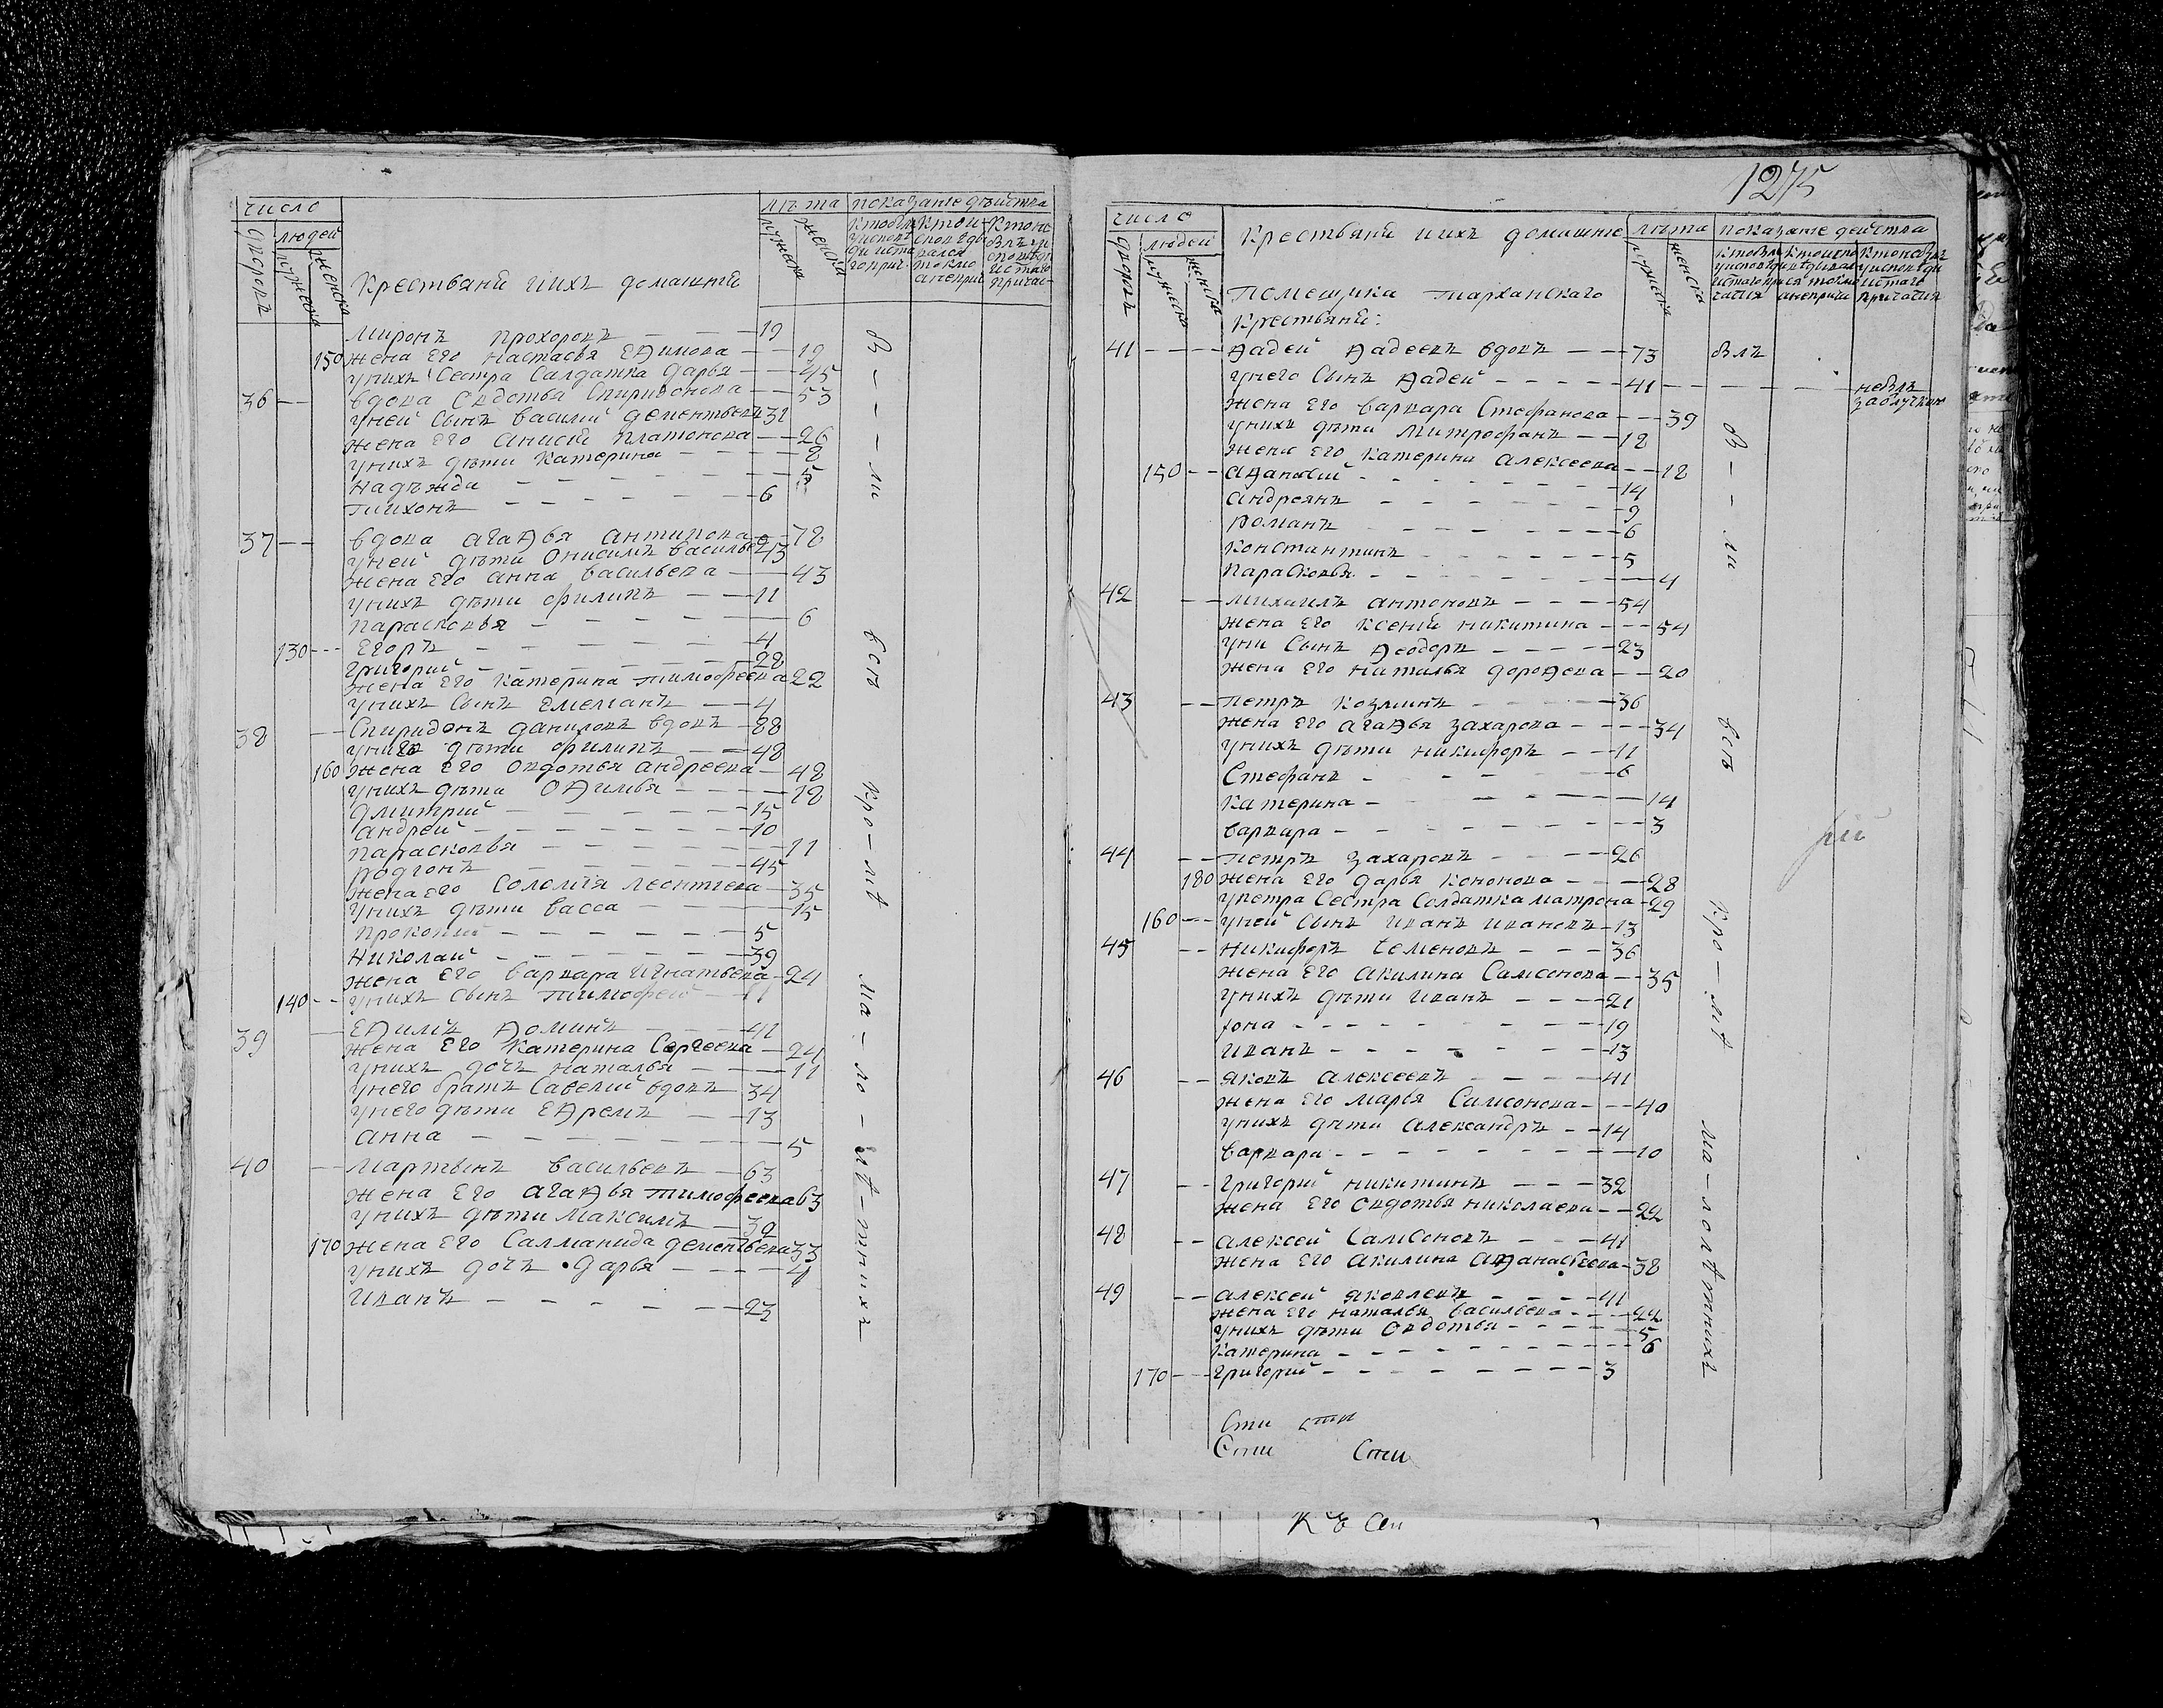 число
людей
дворовъ
мужеска
женска
Крестьяни иихъ домашнѣи
лѣта
мужеска
женска
показанïе дѣиства
Миронъ Прохоровъ — — — 19
150 жена Его Настасья Еѳимова — — 19
унихъ Сестра Салдатка Дарья — — 45
36 — — вдова Овдотья Спиридонова — — 53
уней Сынъ василий дементьевъ 31
жена Его Анисия Платонова — — 26
унихъ дѣти Катерина — — — 8
Надѣжда — — — — 5
Тихонъ — — — — — 6
37 — — вдова Агаѳья Антипова — 78
уней дѣти Онисимъ васильевъ 43
жена Его Анна васильева — — 43
унихъ дѣти филипъ — — 11
Парасковья — — — — 6
130 — — Егоръ — — — — 4
григорий — — — — — 28
жена Его Катерина тимофеева 22
унихъ Сынъ Емелианъ — — 4
38 — — Спиридонъ даниловъ вдовъ — 88
унего дѣти филипъ — — 48
160 жена Его Овдотья Андреева — 48
унихъ дѣти Оѳимья — — — 18
Дмитрий — — — — — 15
Андрей — — — — — — 10
Парасковья — — — — — 11
Родïонъ — — — — — 45
жена его Соломïя леонтïева — 35
унихъ дѣти васса — — — 15
Прокопий — — — — — 5
Николай — — — — — 39
жена Его варвара Игнатьева — 24
140 — — унихъ сынъ тимофей — 11
39 — Еѳимъ Ѳоминъ — — — 41
жена Его Катерина Сергеева — 24
унихъ дочь наталья — — — 11
унего братъ Савелий вдовъ — 34
унего дѣти Еѳремъ — — 13
анна — — — — — — 5
40 — — Мартынъ васильевъ — 63
жена Его агаѳья тимофеева 63
унихъ дѣти Максимъ — 39
170 жена Его Салманида дементьева 33
унихъ дочь Дарья — — — — 4
Иванъ — — — — — 23
в — — — ли всѣ кро — мѣ ма — ло — лѣ — тнихъ
1275
число
людей
дворовъ
мужеска
женска
Крестьяни иихъ домашнïе
лѣта
мужеска
женска
показанïе действа
Помещика тарханскаго
Крестьяни:
41 — — — — Ѳадей Ѳадеевъ вдовъ — — 73 былъ
унего Сынъ Ѳадей — — — — — 41 — — — — — — небылъ
жена Его варвара Стефанова — — 39
унихъ дѣти Митрофанъ — — 18
жена Его Катерина Алексеева — — 18
150 — — Аѳанасий — — — — — — 14
Андреянъ — — — — — — — 9
Романъ — — — — — — — 6
Константинъ — — — — — — 5
Парасковья — — — — — — 4
42 — — Михаилъ антоновъ — — — 54
жена Его Ксения никитина — — — 54
уни Сынъ Ѳеодоръ — — — — 23
жена Его наталья дороѳеева — — 20
43 — — Петръ Козминъ — — — — 36
жена Его агаѳья Захарова — — — — 34
унихъ дѣти никифоръ — — 11
Стефанъ — — — — — — 6
Катерина — — — — — — 14
варвара — — — — — — — 3
44 — — Петръ Захаровъ — — — — 26
180 жена Его Дарья Кононова — — — 28
упетра Сестра Солдатка матрона — 29
160 — — уней Сынъ Иванъ Ивановъ — 13
45 — — Никифоръ Семеновъ — — — 36
жена Его акилина Самсонова — — 35
унихъ дѣти Иванъ — — — — 21
Iона — — — — — — — — 19
Иванъ — — — — — — — — 13
46 — — яковъ алексеевъ — — — — 41
жена Его Марья Самсонова — — — 40
унихъ дѣти Александръ — — 14
варвара — — — — — — — — 10
47 — — григорий никитинъ — — — 32
жена Его Овдотья николаева — — 22
48 — — алексей Самсоновъ — — — 41
жена Его акилина Аѳанасьева — 38
49 — — алексей яковлевъ — — — — 41
жена Его наталья васильева — — — 22
унихъ дѣти Овдотья — — — — — 5
Катерина — — — — — — — — — 6
170 — — — григорий — — — — — — 3
в — — — ли всѣ кро — мѣ ма — лолѣтнихъ
Сти сти
Сти Сти